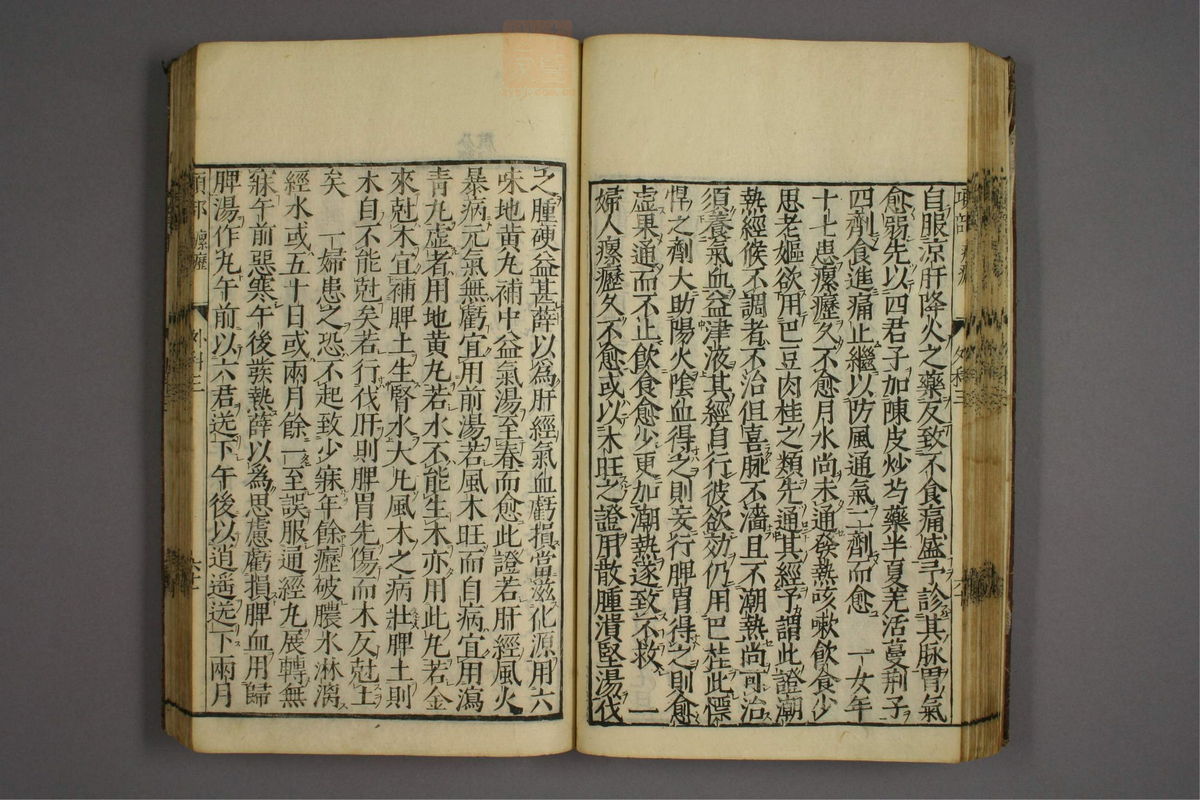 自服凉肝降火之藥反致不食痛盛予診其脉胃氣
愈弱先以四君子加陳皮炒芍藥半夏羌活蔓荊子
四劑食進痛止繼以防風通氣二劑而愈　一女年
十七患瘰癧久不愈月水尚未通發熱咳嗽飲食少
思老嫗欲用巴豆肉桂之類先通其經予謂此證潮
熱經候不調者不治但喜脉不濇且不潮熱尚可治
須養氣血益津液其經自行彼欲効仍用巴桂此慓
悍之劑大助陽火陰血得之則妄行脾胃得之則愈
虛果通而不止飲食愈少更加潮熱遂致不救　一
婦人瘰癧久不愈或以木旺之證用散腫潰堅湯伐
之腫硬益甚薛以爲肝經氣血虧損當滋化源用六
味地黃丸補中益氣湯至春而愈此證若肝經風火
暴病元氣無虧宜用前湯若風木旺而自病宜用瀉
青丸虛者用地黃丸若水不能生木亦用此丸若金
來尅木宜補脾土生腎水大凡風木之病壯脾土則
木自不能尅矣若行伐肝則脾胃先傷而木反尅土
矣　一婦患之恐不起致少寐年餘癧破膿水淋漓
經水或五十日或兩月餘一至誤服通經丸展轉無
寐午前惡寒午後發熱薛以爲思慮虧損脾血用歸
脾湯作丸午前以六君送下午後以逍遥送下兩月
項部　瘰癧　外科三　六十